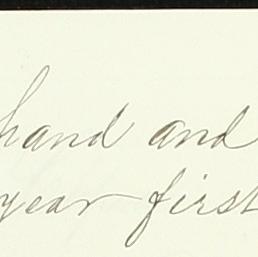 hand and
year first